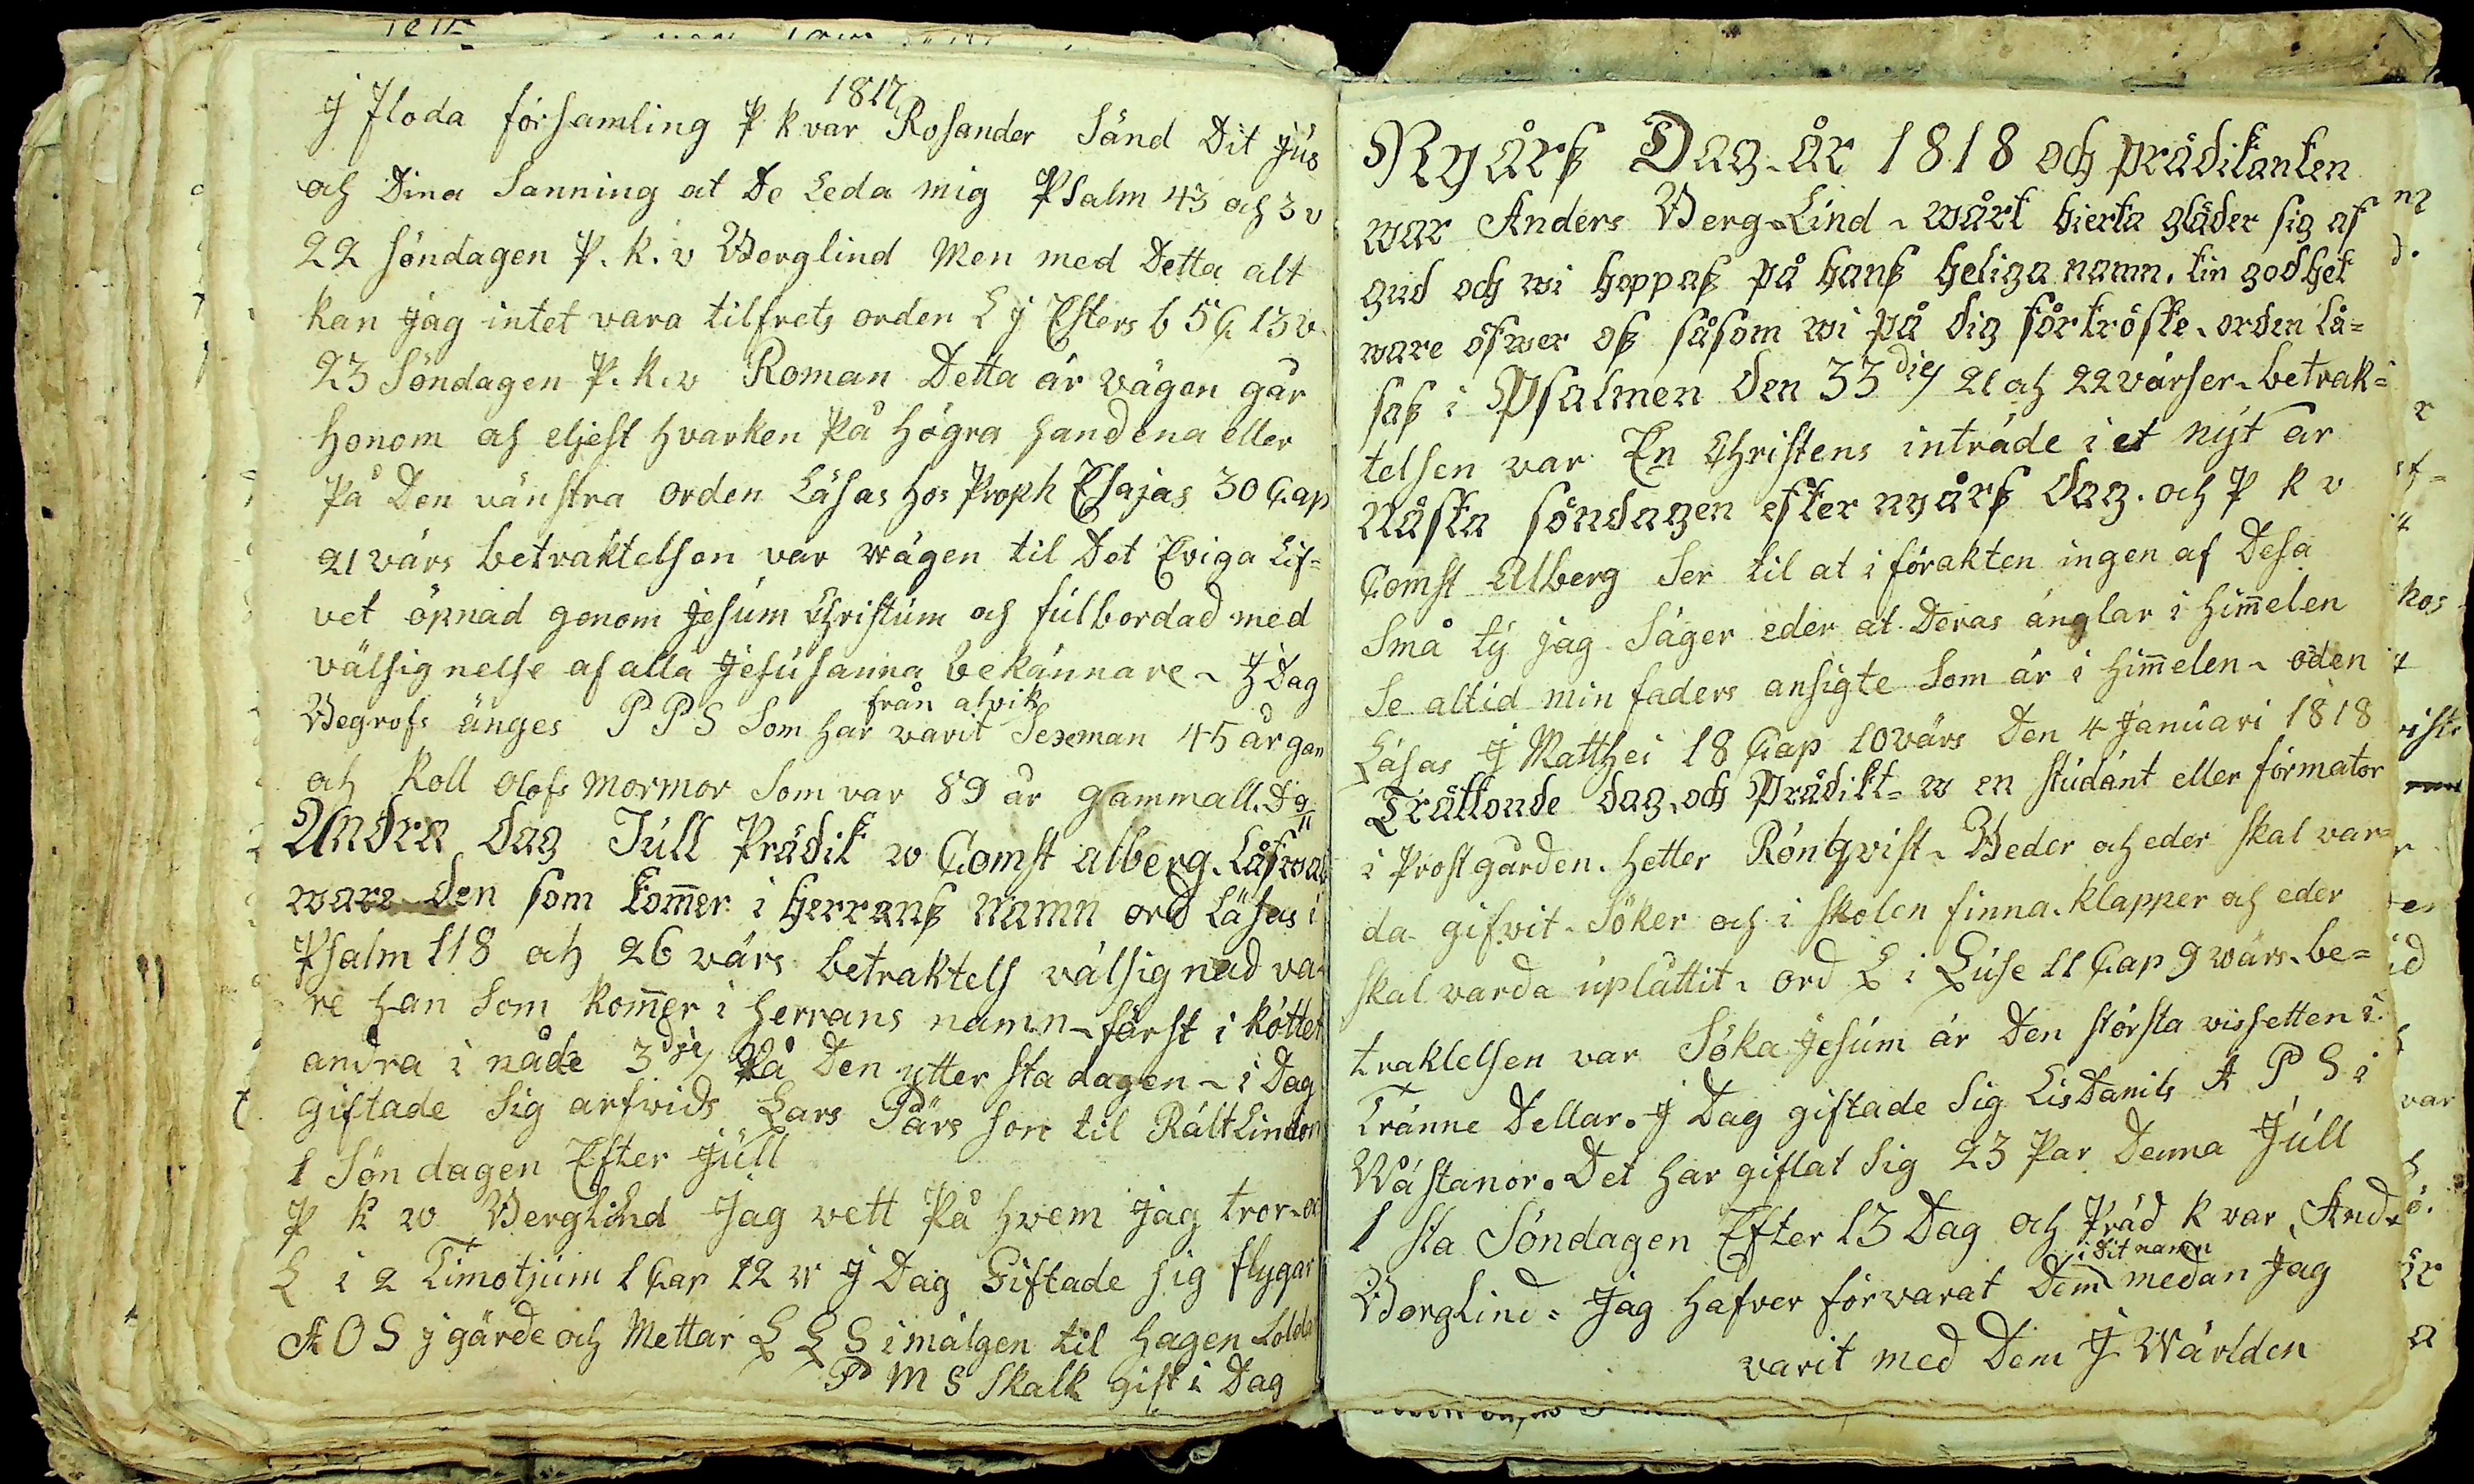 1817
j Floda församling P k var Rosander Sänd Dit jus
och Dina Sanning at De Leda mig Psalm 43 och 3 v
22 söndagen P. k. v Berglind Men med Detta alt
kan jag intet vara tilfrets orden L j Esters b 5 C 13 v.
23 Söndagen P. k. v Roman Detta är vägen går
honom och eljest hvarken på högra handena eller
På Den vänstra orden Läsas hos Proph Esajas 30 Cap
21 värs betraktelsen var wägen til Det Eviga Lif=
vet öpnad genom Jesum Christum och fulbordad med
välsignelse af alla Jesu sanna bekännare ~ J Dag
från alvik
Begrofs änges P P S Som har varit Sexman 45 år gam
och Koll Olofs mormor Som var 89 år gammall. D 9/11
Andra dag Júll Prädik w Comst alberg. Låfwad
ware den som kom̄er i herranß namn ord Läsas i
Psalm 118 och 26 värs betraktels välsignad va-
re han Som kom̄er i herrans namn ~ först i köttet
andra i nåde 3die På Den yttersta dagen ~ i Dag
giftade Sig arfvids Lars Pärs son til Rältlindor
1 Söndagen Efter Júll
P k w Berglind Jag vett På hvem jag tror ~ or
L i 2 Timotjum 1 Cap 12 v J Dag Giftade sig flygar
A O S j gärde och Mettar L L S i mälgen til hagen Solda
P M S Skalk gift i Dag
Nyårß Dag år 1818 och prädikanten
war Anders Berg=Lind ~ wårt hierta gläder sig af
gud och wi hoppaß på hanß heliga namn. tin godhet
ware öfwer oß såsom wi på dig förtröste. orden lä=
saß i Psalmen den 33die 21 och 22 värser. betrak=
telsen var En Christens inträde i et nyt år
Nästa söndagen efter nyårß dag. och P k v
Comst Alberg Ser til at i förakten ingen af Desa
Små ty jag Säger eder at Deras änglar i him̄elen
Se altid min faders ansigte Som är i him̄elen ~ oden
Läsas J Matthei 18 Cap 10 värs Den 4 Januari 1818
Trättonde dag. och Prädikt= w en studänt eller förmator
i Prostgården. hetter Röntqvist ~ Beder och eder skal var=
da gifvit. Söker och i skolen finna. klapper och eder
skal varda uplåttit. ord L i Luse 11 Cap 9 wärs. be=
traktelsen var Söka Jesum är Den största vissetten i
Tränne Dellar. J Dag giftade Sig LisDanils A P S i
Wästanor. Det har giftat Sig 23 Par Denna Júll
1 sta Söndagen Efter 13 Dag och Präd k var And.
i Dit namn
Berglind = Jag hafver förvarat Dem medan Jag
varit med Dem J Wärlden